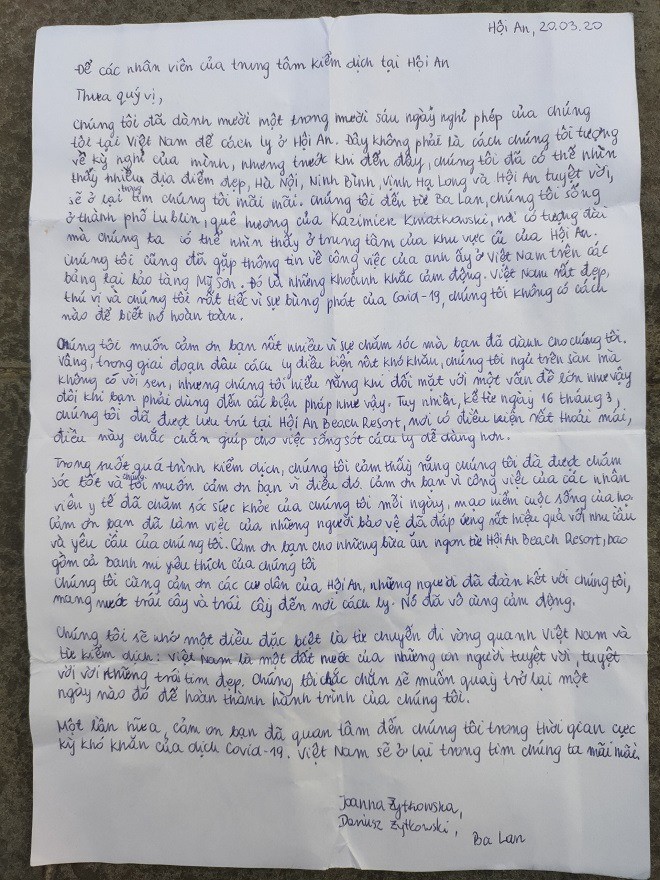 Hội An, 20.03.20
Để các nhân viên của trung tâm kiểm dịch tại Hội An
Thưa quý vị,
Chúng tôi đã dành mười một trong mười sáu ngày nghỉ phép của chúng
tôi tại Việt Nam để cách ly ở Hội An. Đây không phải là cách chúng tôi tượng
về kỳ nghỉ của mình, nhưng trước khi đến đây, chúng tôi đã có thể nhìn
thấy nhiều địa điểm đẹp, Hà Nội, Ninh Bình, Vịnh Hạ Long và Hội An tuyệt vời,
sẽ ở lại trong tim chúng tôi mãi mãi. Chúng tôi đến từ Ba Lan, chúng tôi sống
ở thành phố Lublin, quê hương của Kazimier Kwiatkowski, nơi có tượng đài
mà chúng ta có thể nhìn thấy ở trung tâm của khu vực cũ của Hội An.
Chúng tôi cũng đã gặp thông tin về công việc của anh ấy ở Việt Nam trên các
bảng tại bảo tàng Mỹ Sơn. Đó là những khoảnh khắc cảm động. Việt Nam rất đẹp,
thú vị và chúng tôi rất tiếc vì sự bùng phát của Covid-19, chúng tôi không có cách
nào để biết nó hoàn toàn.
Chúng tôi muốn cảm ơn bạn rất nhiều vì sự chăm sóc mà bạn đã dành cho chúng tôi.
Vâng, trong giai đoạn đầu cách ly điều kiện rất khó khăn, chúng tôi ngủ trên sàn mà
không có vòi sen, nhưng chúng tôi hiểu rằng khi đối mặt với một vấn đề lớn như vậy
đôi khi bạn phải dùng đến các biện pháp như vậy. Tuy nhiên, kể từ ngày 16 tháng 3,
chúng tôi đã được lưu trú tại Hội An Beach Resort, nơi có điều kiện rất thoải mái,
điều này chắc chắn giúp cho việc sống sót cách ly dễ dàng hơn.
Trong suốt quá trình kiểm dịch, chúng tôi cảm thấy rằng chúng tôi đã được chăm
sóc tốt và chúng tôi muốn cảm ơn bạn vì điều đó. Cảm ơn bạn vì công việc của các nhân
viên y tế đã chăm sóc sức khỏe của chúng tôi mỗi ngày, mạo hiểm cuộc sống của họ.
Cảm ơn bạn đã làm việc của những người bảo vệ đã đáp ứng rất hiệu quả với nhu cầu
và yêu cầu của chúng tôi. Cảm ơn bạn cho những bữa ăn ngon từ Hội An Beach Resort, bao
gồm cả banh mi yêu thích của chúng tôi
Chúng tôi cũng cảm ơn các cư dân của Hội An, những người đã đoàn kết với chúng tôi,
mang nước trái cây và trái cây đến nơi cách ly. Nó đã vô cùng cảm động.
Chúng tôi sẽ nhớ một điều đặc biệt là từ chuyến đi vòng quanh Việt Nam và
từ kiểm dịch: Việt Nam là một đất nước của những con người tuyệt vời, tuyệt
vời với những trái tim đẹp. Chúng tôi chắc chắn sẽ muốn quay trở lại một
ngày nào đó để hoàn thành hành trình của chúng tôi.
Một lần nữa, cảm ơn bạn đã quan tâm đến chúng tôi trong thời gian cực
kỳ khó khăn của dịch Covid-19. Việt Nam sẽ ở lại trong tim chúng ta mãi mãi.
Joanna Żytkowska,
Dariusz Żytkowski,
Ba Lan